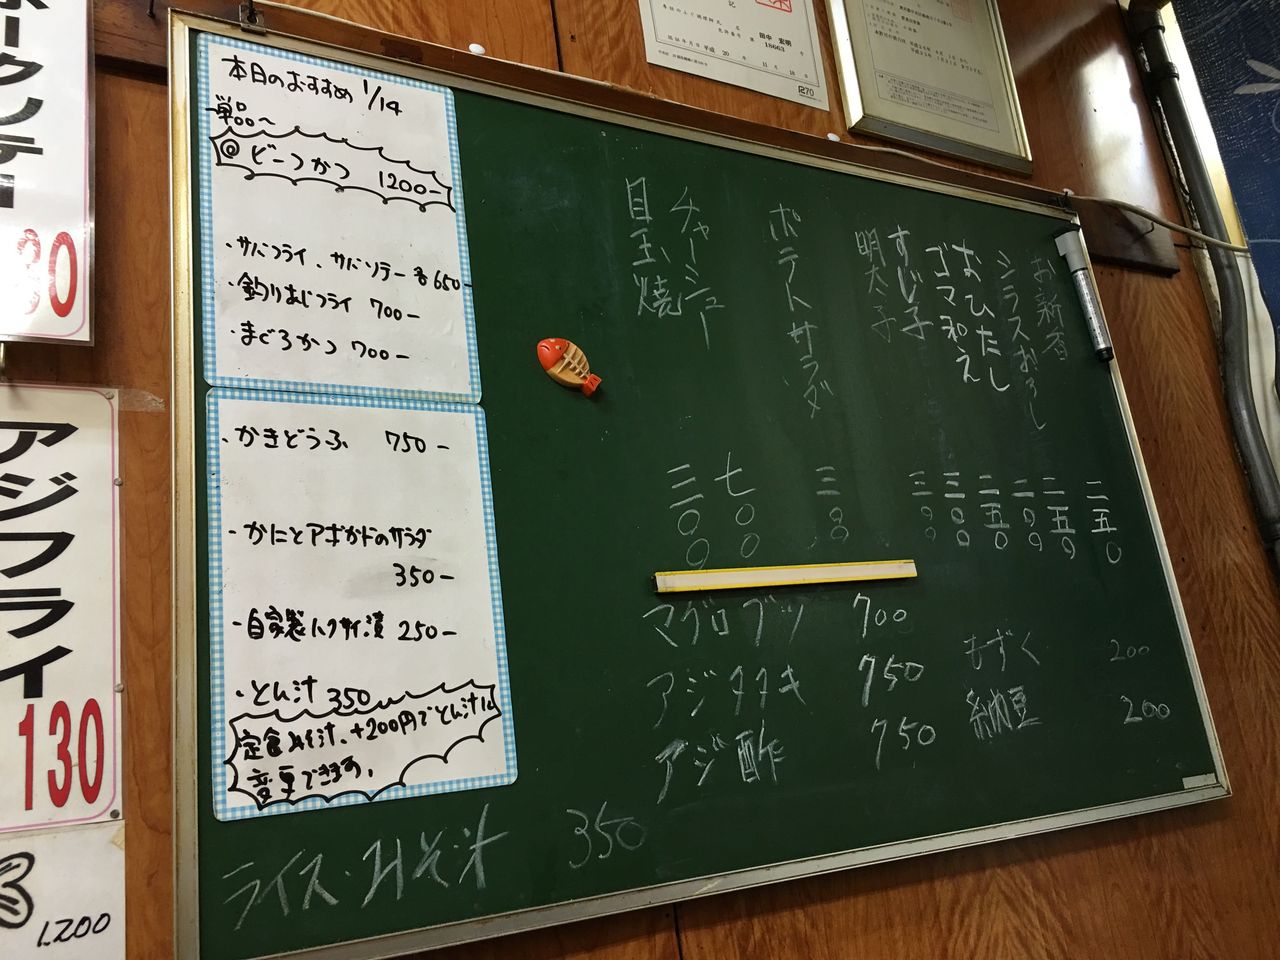 本日のおすすめ 1/14
単品〜
@ どーつかつ 1200−
・サバフライ、サバソテー 各650−
・釣りあじフライ 700−
・まぐろかつ 700−
・かきどうふ 750−
・かにとアボカドのサラダ
350−
・自家製ハクサイ漬 250−
・とん汁 350
定食みそ汁、+200円でとん汁に
変更できます。
お新香 二五〇
シラスおろし 二五〇
おひたし 二〇〇
ゴマ和え 二五〇
すじ子 三〇〇
明太子 三〇〇
ポテトサラダ 三〇〇
チャーシュー 七〇〇
目玉焼 三〇〇
マグロブツ 700
アジタタキ 750
アジ酢 750
もずく 200
納豆 200
ライス・みそ汁 350
30
アジフライ
130
1.200
田中 宏明
第 18663 号
平成 20 年 11月 18日